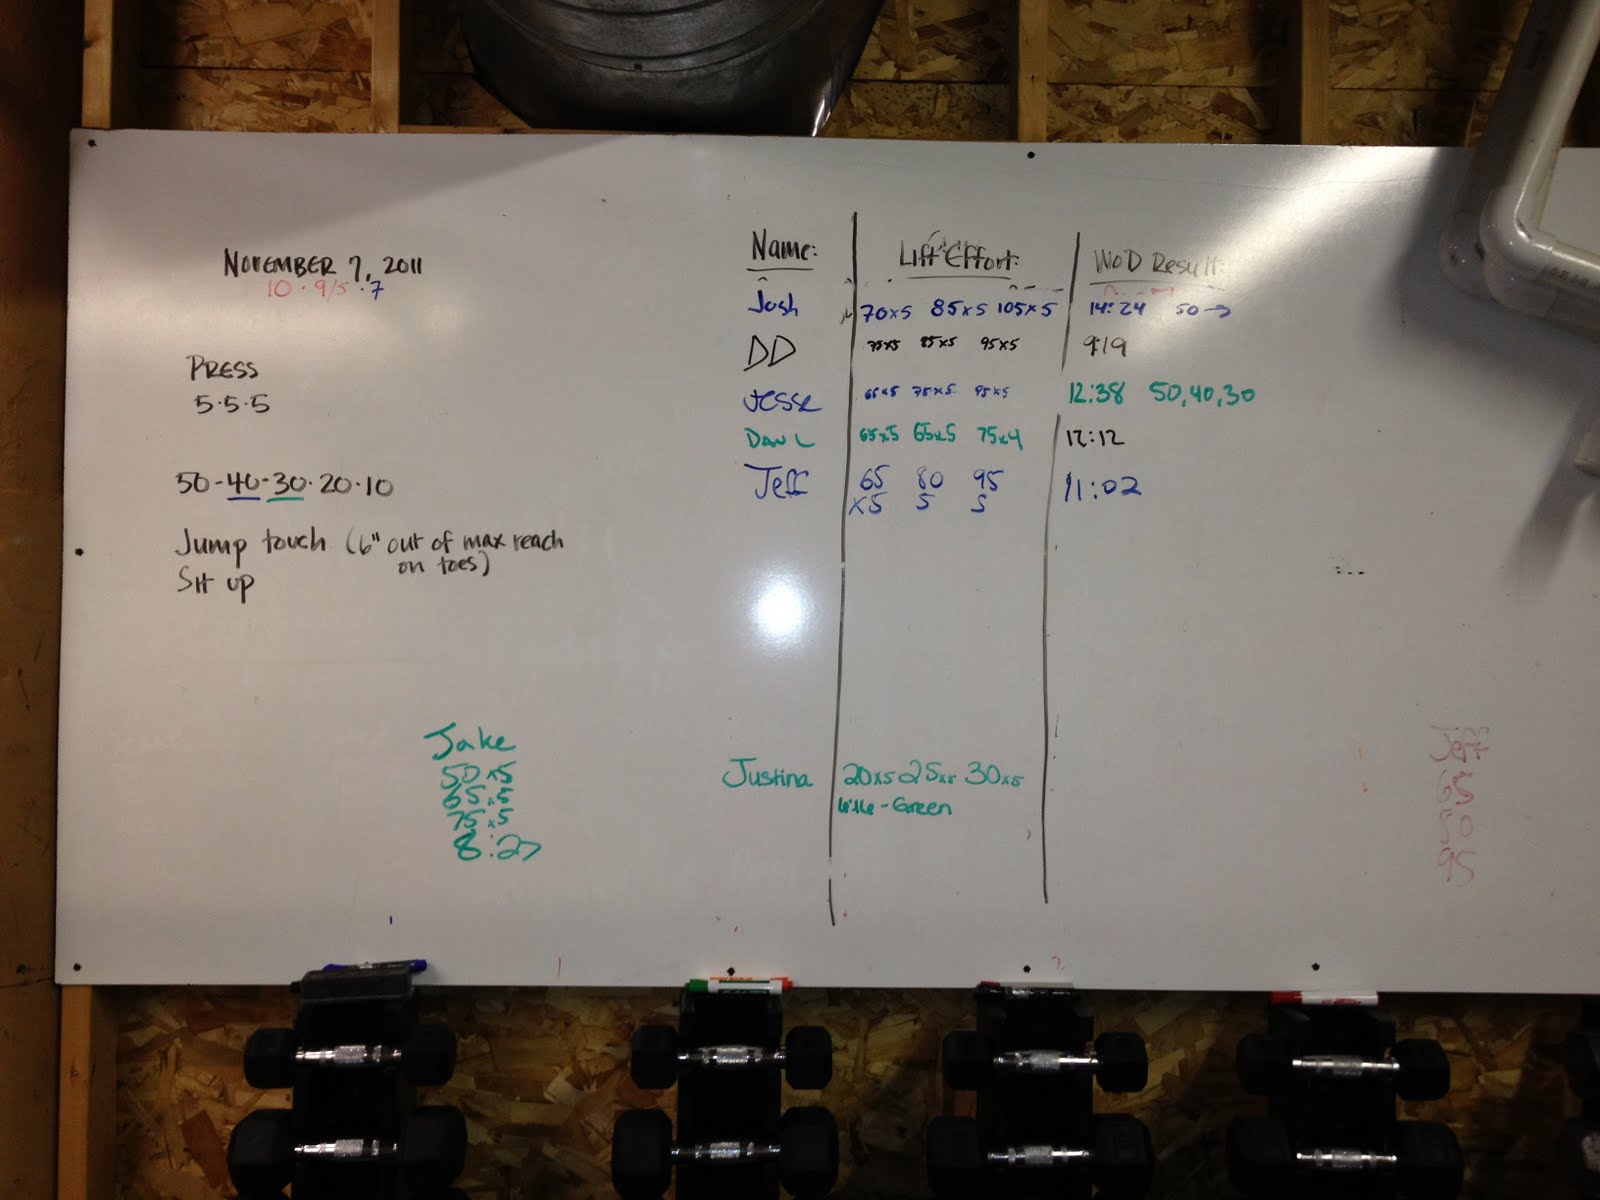 NOVEMBER 7, 2011
10 · 9/5 · 7
PRESS
5·5·5
50-40-30·20·10
Jump touch (6" out of max reach
on toes)
Sit up
Jake
50x5
65x5
75x5
8:27
Name: Lift Effort: WOD Result:
Josh 70x5 85x5 105x5 14:24 50→
DD 75x5 85x5 95x5 9:19
Jesse 65x5 75x5 95x5 12:38 50,40,30
Dan L 65x5 65x5 75x4 12:12
Jeff 65 80 95 11:02
x5 5 5
Justina 20x5 25x5 30x5
-Green
Jeff
65
80
95